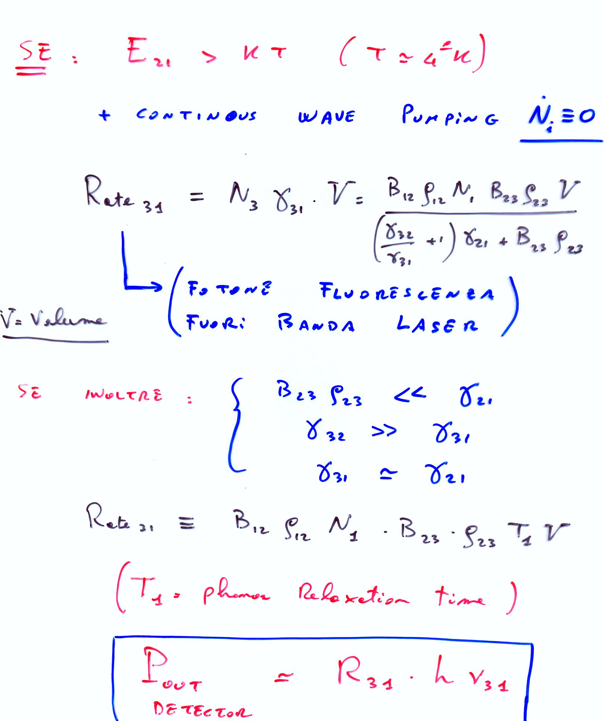 SE : E₂₁ > KT (T ≃ 4°K)
+ CONTINOUS WAVE PUMPING Ṅᵢ ≡ 0
Rate ₃₁ = N₃ γ₃₁ · V = B₁₂ ρ₁₂ N₁ B₂₃ ρ₂₃ V / ((γ₃₂/γ₃₁ + 1) γ₂₁ + B₂₃ ρ₂₃)
(FOTONE FLUORESCENZA
FUORI BANDA LASER)
V = Volume
SE INOLTRE : { B₂₃ ρ₂₃ << γ₂₁
γ₃₂ >> γ₃₁
γ₃₁ ≃ γ₂₁
Rate ₃₁ ≡ B₁₂ ρ₁₂ N₁ · B₂₃ · ρ₂₃ T₁ V
(T₁ = phonon Relaxation time)
P_OUT ≃ R₃₁ · h ν₃₁
DETECTOR